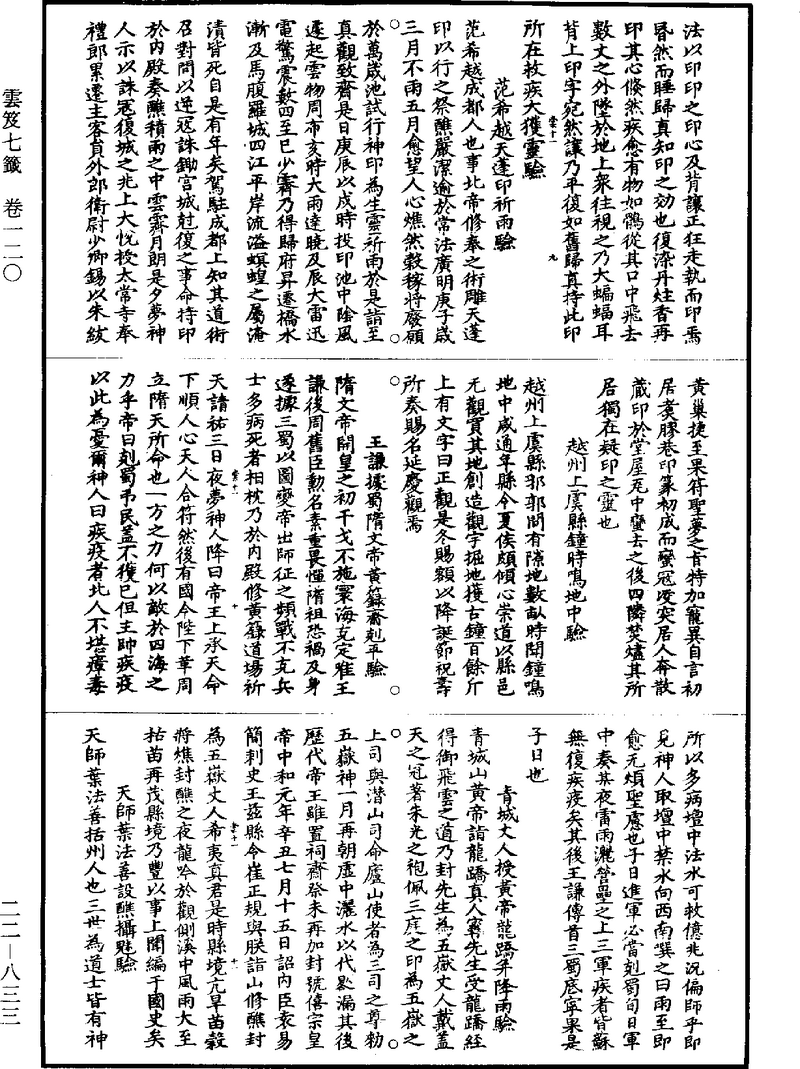 雲笈七籤　卷一二〇
二二—八三三
法以印印之印心及背讓正狂走執而印焉
昏然而睡歸真知印之効也復染丹炷香再
印其心倏然疾愈有物如鶻從其口中飛去
數丈之外墜於地上衆往視之乃大蝙蝠耳
背上印字宛然讓乃平復如舊歸真持此印
所在救疾大獲靈驗
范希越天蓬印祈雨驗
范希越成都人也事北帝修奉之術雕天蓬
印以行之祭醮嚴潔逾於常法廣明庚子歲
三月不雨五月愈望人心燋然穀稼將廢願
於萬歲池試行神印為生靈祈雨於是詣至
真觀致齋是日庚辰以戌時投印池中陰風
遽起雲物周布亥時大雨達曉及辰大雷迅
電驚震數四至巳少霽乃得歸府昇遷橋水
漸及馬腹羅城四江平岸流溢螟蝗之屬淹
漬皆死自是有年矣駕駐成都上知其道術
召對問以逆冦誅鋤宫城尅復之事命持印
於內殿奏醮積雨之中雲霽月朗是夕夢神
人示以誅冦復城之兆上大悅授太常寺奉
禮郎累遷主客員外郎衛尉少卿錫以朱紱
黃巢捷至果符聖夢之旨特加寵異自言初
居婁膠巷印篆初成而蠻冦凌突居人奔散
藏印於堂屋瓦中蠻去之後四隣焚爐其所
居獨在疑印之靈也
越州上虞縣鐘時鳴地中驗
越州上虞縣邪郭間有隙地數畝時聞鐘鳴
地中咸通年縣令夏侯頗傾心崇道以縣邑
无觀買其地創造觀宇掘地獲古鐘百餘斤
上有文字曰正觀是冬賜額以降誕節祝壽
所奏賜名延慶觀焉
王謙據蜀隋文帝黃籙齋剋平驗
隋文帝開皇之初干戈不施寰海克定雄王
謙後周舊臣勳名素重畏憚隋祖恐禍及身
遂據三蜀以圖變帝出師征之頻戰不克兵
士多病死者相枕乃於內殿修黃籙道場祈
天請祐三日夜夢神人降曰帝王上承天命
下順人心天人合符然後有國今陛下革周
立隋天所命也一方之力何以敵於四海之
力乎帝曰剋蜀弔民蓋不獲已但王師疾疫
以此為憂爾神人曰疾疫者北人不堪瘴毒
所以多病壇中法水可救億兆況偏師乎即
見神人取壇中禁水向西南噀之曰雨至即
愈无煩聖慮也子日進軍必當剋蜀旬日軍
中奏某夜雷雨灑營壘之上三軍疾者皆蘇
無復疾疫矣其後王謙傳首三蜀底寧果是
子日也
青城丈人授黃帝龍蹻并降雨驗
青城山黃帝詣龍蹻真人甯先生受龍蹻經
得御飛雲之道乃封先生為五嶽丈人戴蓋
天之冠著朱光之袍佩三庭之印為五嶽之
上司與潛山司命廬山使者為三司之尊勑
五嶽神一月再朝虛中灑水以代𭉨漏其後
歷代帝王雖置祠齋祭未再加封號僖宗皇
帝中和元年辛丑七月十五日詔內臣袁易
簡刺史王茲縣令崔正規與朕詣山修醮封
為五嶽丈人希夷真君是時縣境亢旱苗穀
將燋封醮之夜龍吟於觀側溪中風雨大至
枯苗再茂縣境乃豐以事上聞編于國史矣
天師葉法善設醮攝魅驗
天師葉法善括州人也三世為道士皆有神